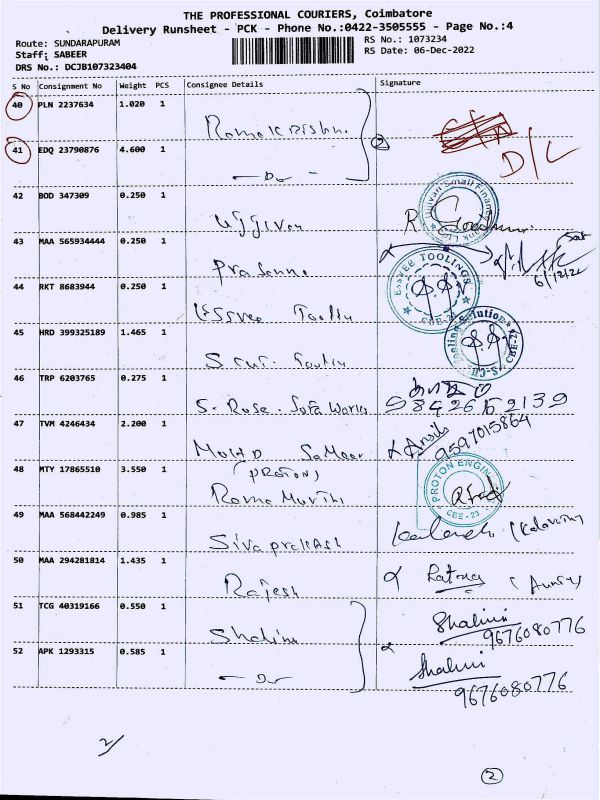 THE PROFESSIONAL COURIERS, Coimbatore
Delivery Runsheet - PCK - Phone No.:0422-3505555 - Page No.:4
Route: SUNDARAPURAM
RS No.: 1073234
Staff: SABEER
RS Date: 06-Dec-2022
DRS No.: DCJB107323404
S No Consignment No Weight PCS Consignee Details Signature
40 PLN 2237634 1.020 1 Ramakrishn. 2
41 EDQ 23790876 4.600 1 - Do - D/L
42 BOD 347309 0.250 1 Ujjivan R.
43 MAA 565934444 0.250 1 Prasanna 6/12/22
44 RKT 8683944 0.250 1 Essvee Toolin ESSVEE TOOLINGS CBE-21
45 HRD 399325189 1.465 1 Toolin Tooling Solution CBE-21
46 TRP 6203765 0.275 1 S. Rose. Sofa Works 9842652139
47 TVM 4246434 2.200 1 Mohd Sameer 9597015864
(PROTON)
48 MTY 17865510 3.550 1 Rama Murthi PROTON ENGINE CBE-23
49 MAA 568442249 0.985 1 Sivaprekash
50 MAA 294281814 1.435 1 Rajesh Ratna
51 TCG 40319166 0.550 1 Shalini Shalini
9676080776
52 APK 1293315 0.585 1 - Do - Shalini
9676080776
2/
2